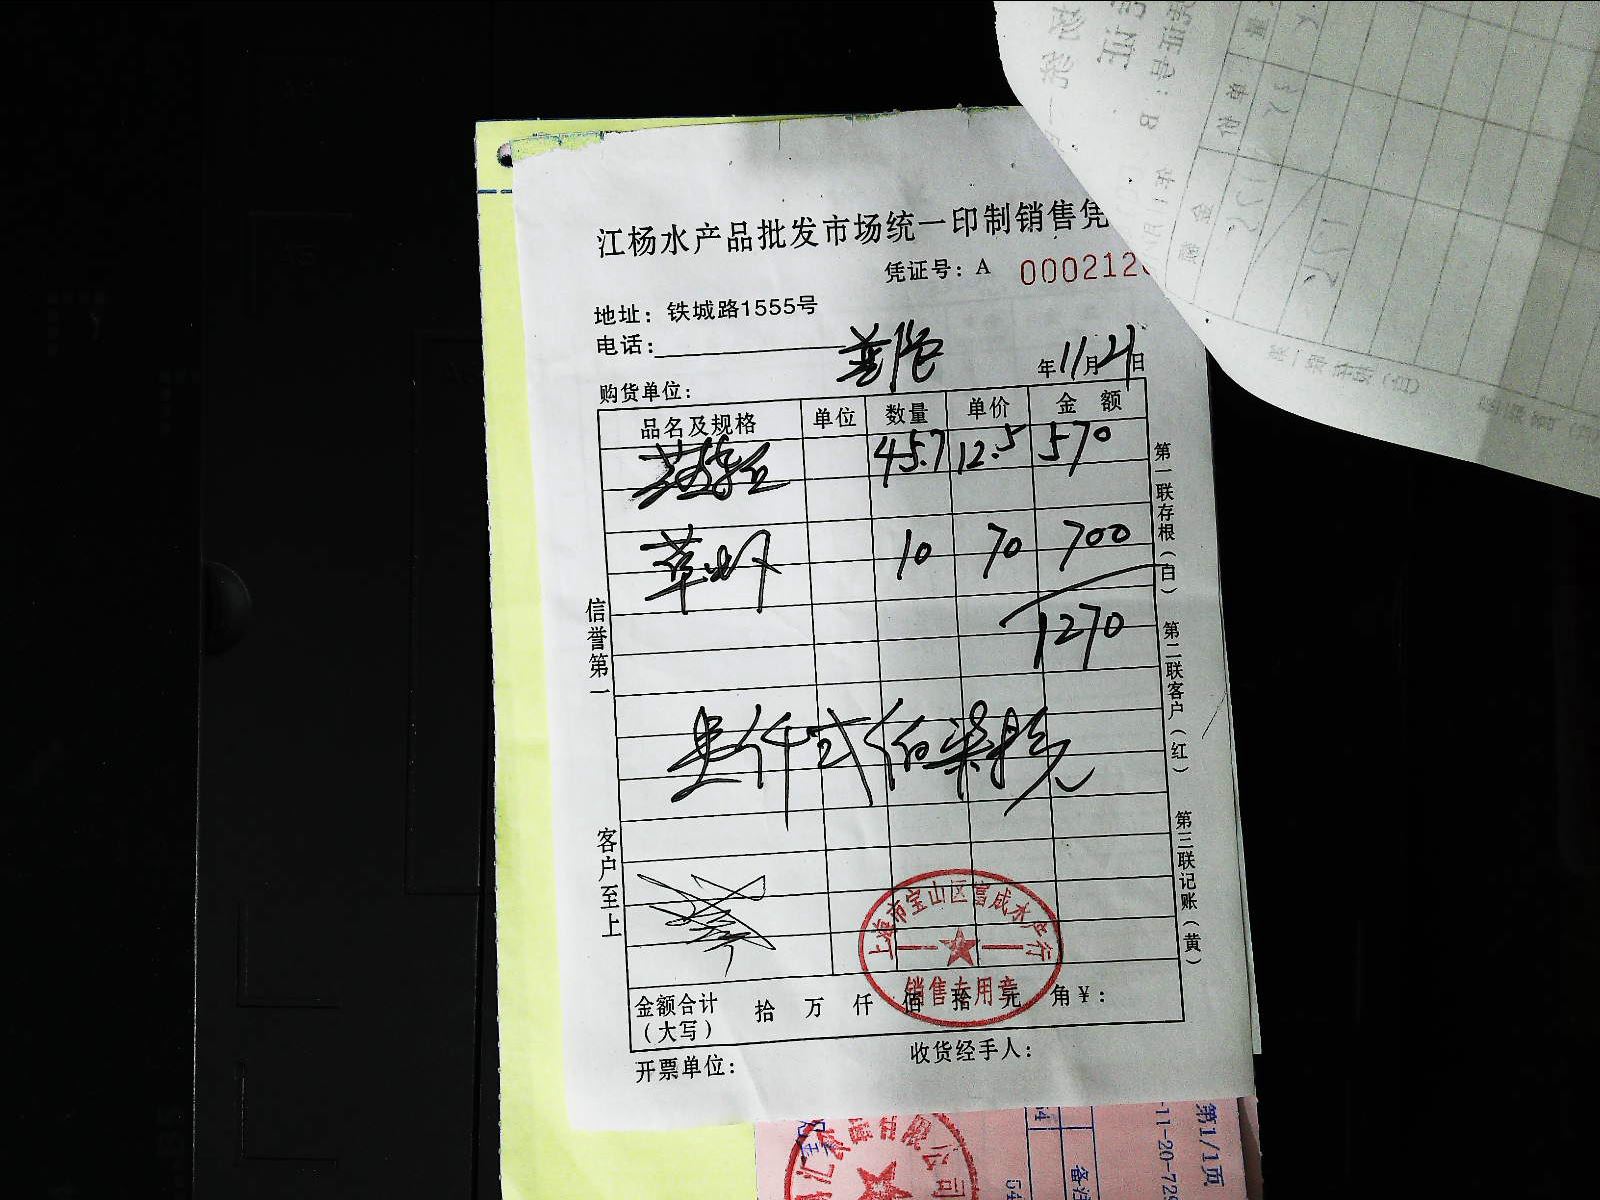 江杨水产品批发市场统一印制销售凭
凭证号：A 000212
地址：铁城路1555号
电话：
购货单位：
年11月21日
品名及规格 单位 数量 单价 金 额
45.7 12.5 570
草虾 10 70 700
1270
壹仟弍佰柒拾元
信誉第一
客户至上
第一联存根（白） 第二联客户（红） 第三联记账（黄）
上海市宝山区富成水产行
销售专用章
金额合计（大写） 拾 万 仟 佰 拾 元 角 ￥：
开票单位：
收货经手人：
第1/1页
-11-20-729
备注
有限公司